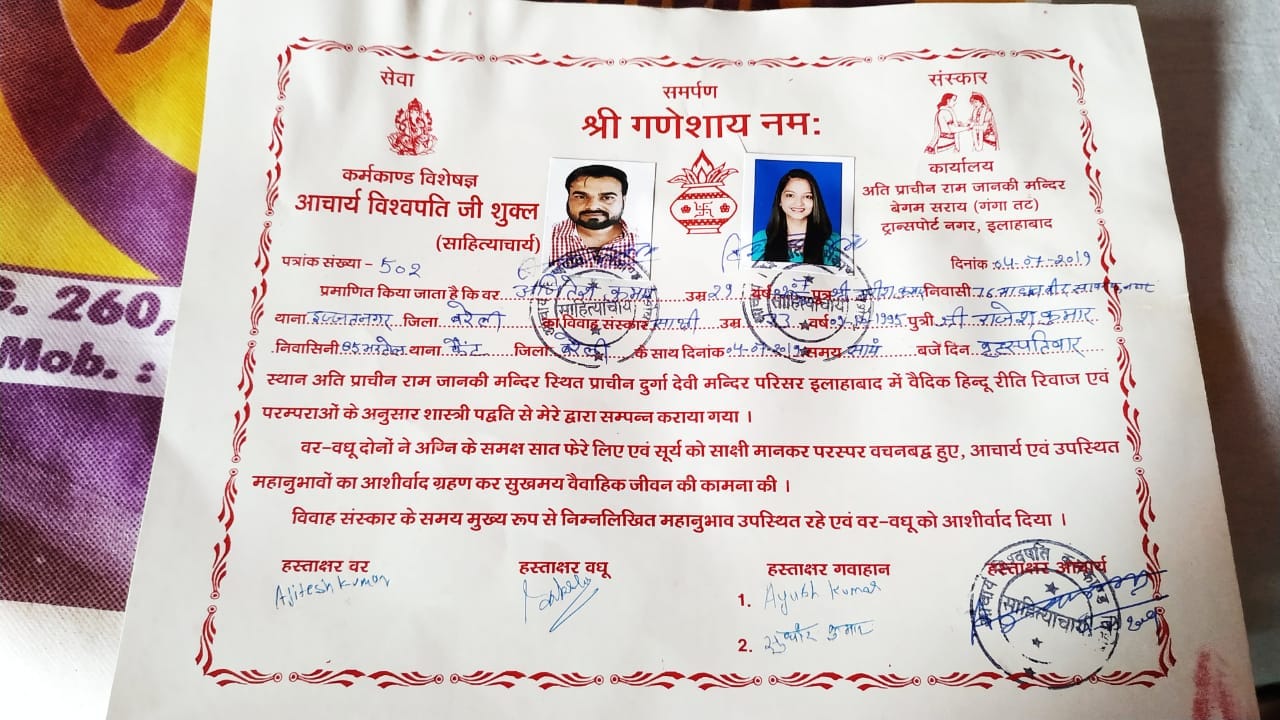 G. 260,
Mob. :
सेवा समर्पण संस्कार
श्री गणेशाय नम:
कर्मकाण्ड विशेषज्ञ
आचार्य विश्वपति जी शुक्ल
(साहित्याचार्य)
कार्यालय
अति प्राचीन राम जानकी मन्दिर
बेगम सराय (गंगा तट)
ट्रान्सपोर्ट नगर, इलाहाबाद
पत्रांक संख्या - 502
दिनांक 04-07-2019
प्रमाणित किया जाता है कि वर कुमार उम्र 29 वर्ष पुत्र श्री निवासी 76
थाना इज्जतनगर जिला बरेली का विवाह संस्कार साक्षी उम्र वर्ष 1995 पुत्री श्री राजेश कुमार
निवासिनी थाना कैंट जिला बरेली के साथ दिनांक 04-07-2019 समय सायं बजे दिन बृहस्पतिवार
स्थान अति प्राचीन राम जानकी मन्दिर स्थित प्राचीन दुर्गा देवी मन्दिर परिसर इलाहाबाद में वैदिक हिन्दू रीति रिवाज एवं
परम्पराओं के अनुसार शास्त्री पद्वति से मेरे द्वारा सम्पन्न कराया गया ।
वर-वधू दोनों ने अग्नि के समक्ष सात फेरे लिए एवं सूर्य को साक्षी मानकर परस्पर वचनबद्व हुए, आचार्य एवं उपस्थित
महानुभावों का आशीर्वाद ग्रहण कर सुखमय वैवाहिक जीवन की कामना की ।
विवाह संस्कार के समय मुख्य रूप से निम्नलिखित महानुभाव उपस्थित रहे एवं वर-वधू को आशीर्वाद दिया ।
हस्ताक्षर वर हस्ताक्षर वधू हस्ताक्षर गवाहान हस्ताक्षर आचार्य
Ajitesh Kumar
1. Ayush Kumar
2. सुधीर कुमार
साहित्याचार्य